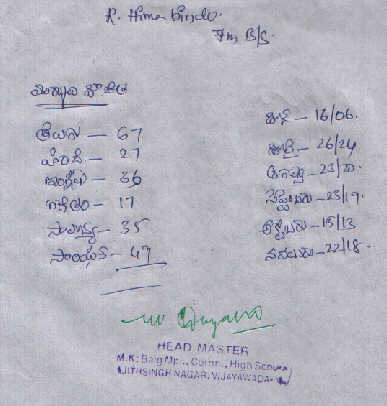 R. Hima bindu.
7th B/S.
తెలుగు – 67
హిందీ – 27
ఇంగ్లీషు – 36
గణితం – 17
సామాన్య – 35
సాంఘీక – 49
జూన్ – 16/06.
జులై – 26/24
ఆగష్టు – 23/
సెప్టెంబరు – 23/19.
అక్టోబరు – 15/13
నవంబరు – 22/18.
HEAD MASTER
M.K. Baig Mpl., Corpn., High School
AJITHSINGH NAGAR, VIJAYAWADA